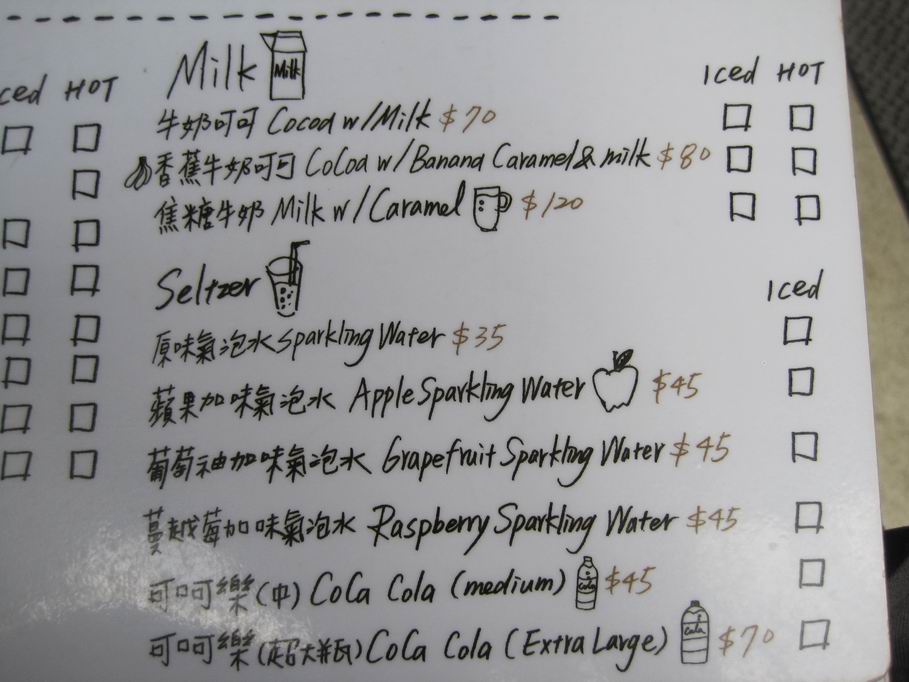 ced HOT
Milk Milk Iced HOT
牛奶叮可 Cocoa w/Milk $70
香蕉牛奶叮可 CoCoa w/Banana Caramel & milk $80
焦糖牛奶 Milk w/Caramel $120
Seltzer Iced
原味氣泡水 Sparkling Water $35
蘋果加味氣泡水 Apple Sparkling Water $45
葡萄柚加味氣泡水 Grapefruit Sparkling Water $45
蔓越莓加味氣泡水 Raspberry Sparkling Water $45
可呵樂(中) CoCa Cola (medium) Cola $45
可呵樂(超大瓶) CoCa Cola (Extra Large) Cola $70